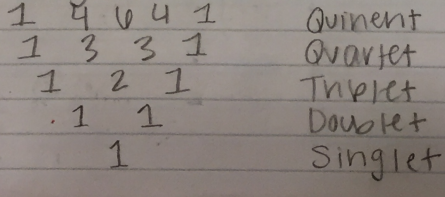 1 4 6 4 1 Quinent
1 3 3 1 Quartet
1 2 1 Triplet
. 1 1 Doublet
1 Singlet